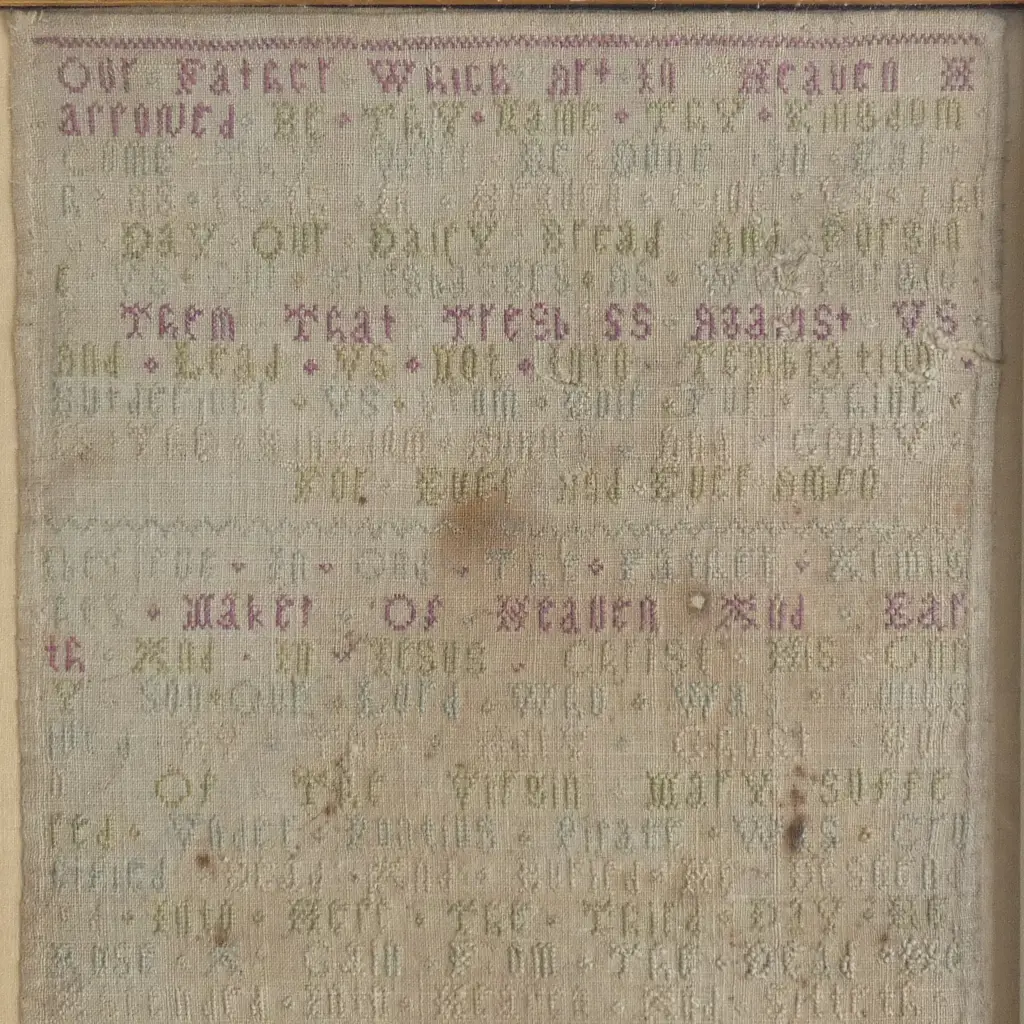 Our Father Which Art In Heaven H
allowed Be Thy Name Thy Kingdom
Come Thy Will Be Done In Eart
h As In Heaven Give
Day Our Daily Bread And Forgiv
e Vs Our Trespasses As We Forgive
Them That Tresp ss Against Vs
And Lead Vs Not Into Temptation
But Vs From Evil For Thine
The Kingdom Power And Glory
For Ever And Ever Amen
In One The Father Almig
Maker Of Heaven And Ear
th And In Iesus Christ His Onl
y Son Our Lord Who Wa
The Holy Ghost
n Of The Virgin Mary Suffe
red Vnder Pontius Pilate Was Cru
cified Dead And Buried He Descend
ed Into Hell The Third Day He
Rose A Gain From The Dead He
Into Heaven And Siteth